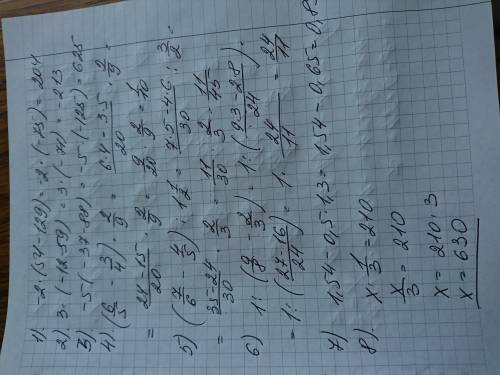 1). -2·(54-129) = -2·(-75) = 204
2). 3·(-12-59) = 3·(-71) = -213
3) -5·(-37-88) = -5·(-125) = 625
4) (6/5 - 3/4) · 2/9 = (6·4-3·5)/20 · 2/9 =
= (24-15)/20 · 2/9 = 9/20 · 2/9 = 1/10
5) (7/6 - 4/5) : 1 1/2 = (7·5-4·6)/30 : 3/2 =
= (35-24)/30 · 2/3 = 11/30 · 2/3 = 11/45
6) 1:(9/8 - 2/3) = 1:((9·3-2·8)/24) =
= 1:((27-16)/24) = 1· 24/11 = 24/11
7) 1,54-0,5·1,3 = 1,54-0,65=0,8
8). x · 1/3 = 210
x/3 = 210
x = 210·3
x = 630